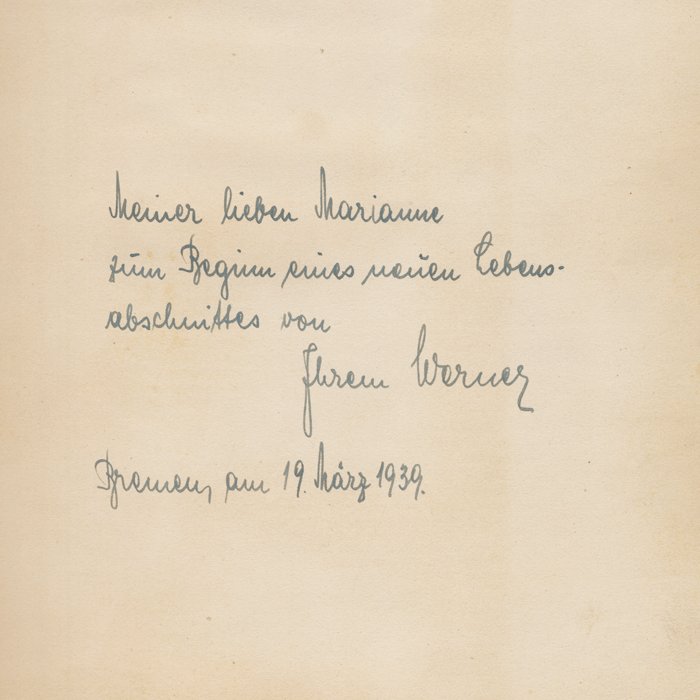 Meiner lieben Marianne
zum Beginn eines neuen Lebens-
abschnittes von
Ihrem Werner
Bremen, am 19. März 1939.